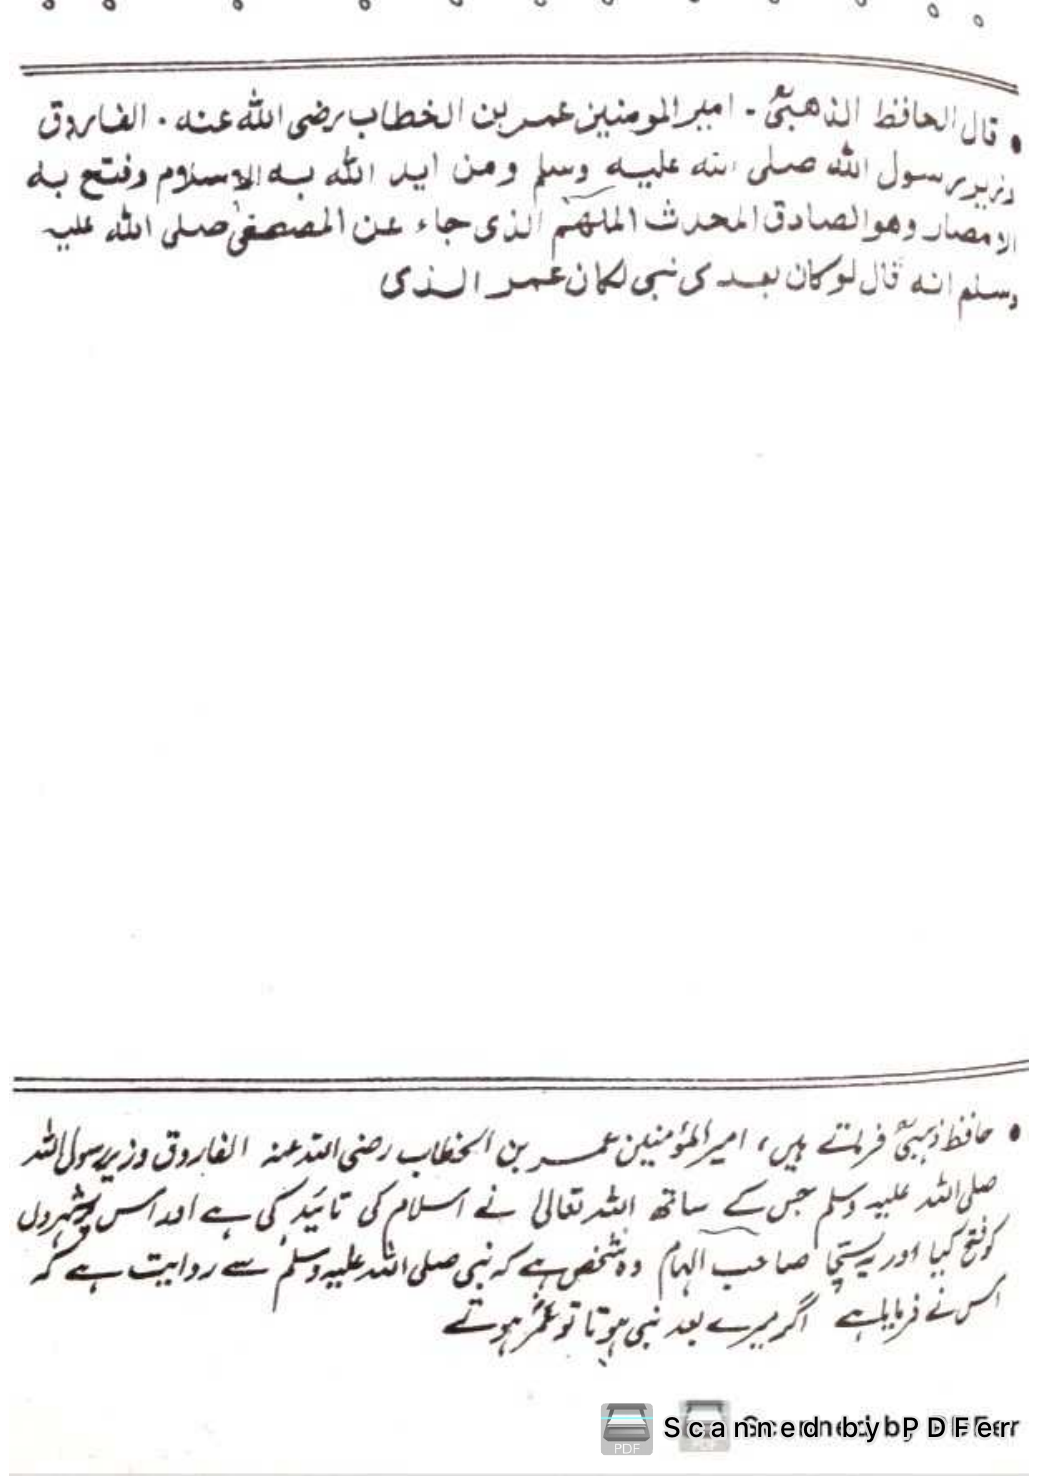 • قال الحافظ الذهبیؒ - امیر المومنین عمر بن الخطاب رضی الله عنه . الفاروق
وزیر رسول الله صلی الله علیه وسلم ومن اید الله به الاسلام وفتح به
الامصار وهو الصادق المحدث الملهم الذی جاء عن المصطفیٰ صلی الله علیه
وسلم انه قال لو کان بعدی نبی لکان عمر الذی
• حافظ ذہبیؒ فرماتے ہیں، امیر المؤمنین عمر بن الخطاب رضی اللہ عنہ الفاروق وزیر رسول اللہ
صلی اللہ علیہ وسلم جس کے ساتھ اللہ تعالیٰ نے اسلام کی تائید کی ہے اور اس پر شہروں
کو فتح کیا اور یہ سچا صاحب الہام وہ شخص ہے کہ نبی صلی اللہ علیہ وسلم سے روایت ہے کہ
اس نے فرمایا ہے اگر میرے بعد نبی ہوتا تو عمرؓ ہوتے
Scanned by PDFer